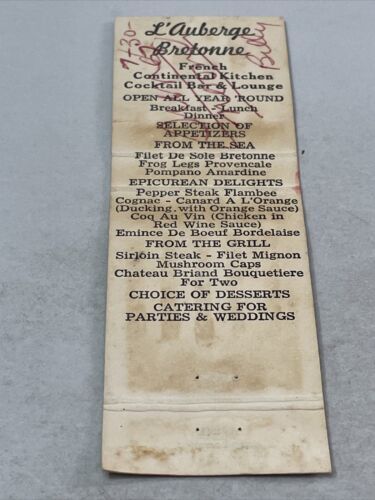 L'Auberge
Bretonne
French
Continental Kitchen
Cocktail Bar & Lounge
OPEN ALL YEAR 'ROUND
Breakfast - Lunch
Dinner
SELECTION OF
APPETIZERS
FROM THE SEA
Filet De Sole Bretonne
Frog Legs Provencale
Pompano Amardine
EPICUREAN DELIGHTS
Pepper Steak Flambee
Cognac - Canard A L'Orange
(Ducking with Orange Sauce)
Coq Au Vin (Chicken in
Red Wine Sauce)
Emince De Boeuf Bordelaise
FROM THE GRILL
Sirloin Steak - Filet Mignon
Mushroom Caps
Chateau Briand Bouquetiere
For Two
CHOICE OF DESSERTS
CATERING FOR
PARTIES & WEDDINGS
7+30-